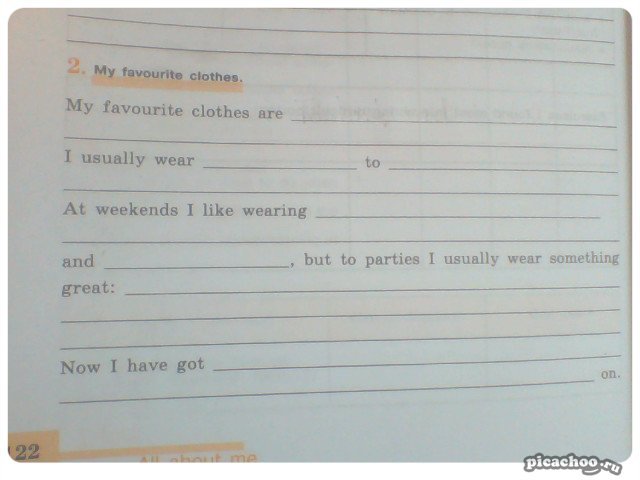 2. My favourite clothes.
My favourite clothes are
I usually wear to
At weekends I like wearing
and , but to parties I usually wear something
great:
Now I have got
on.
22
All about me
picachoo.ru